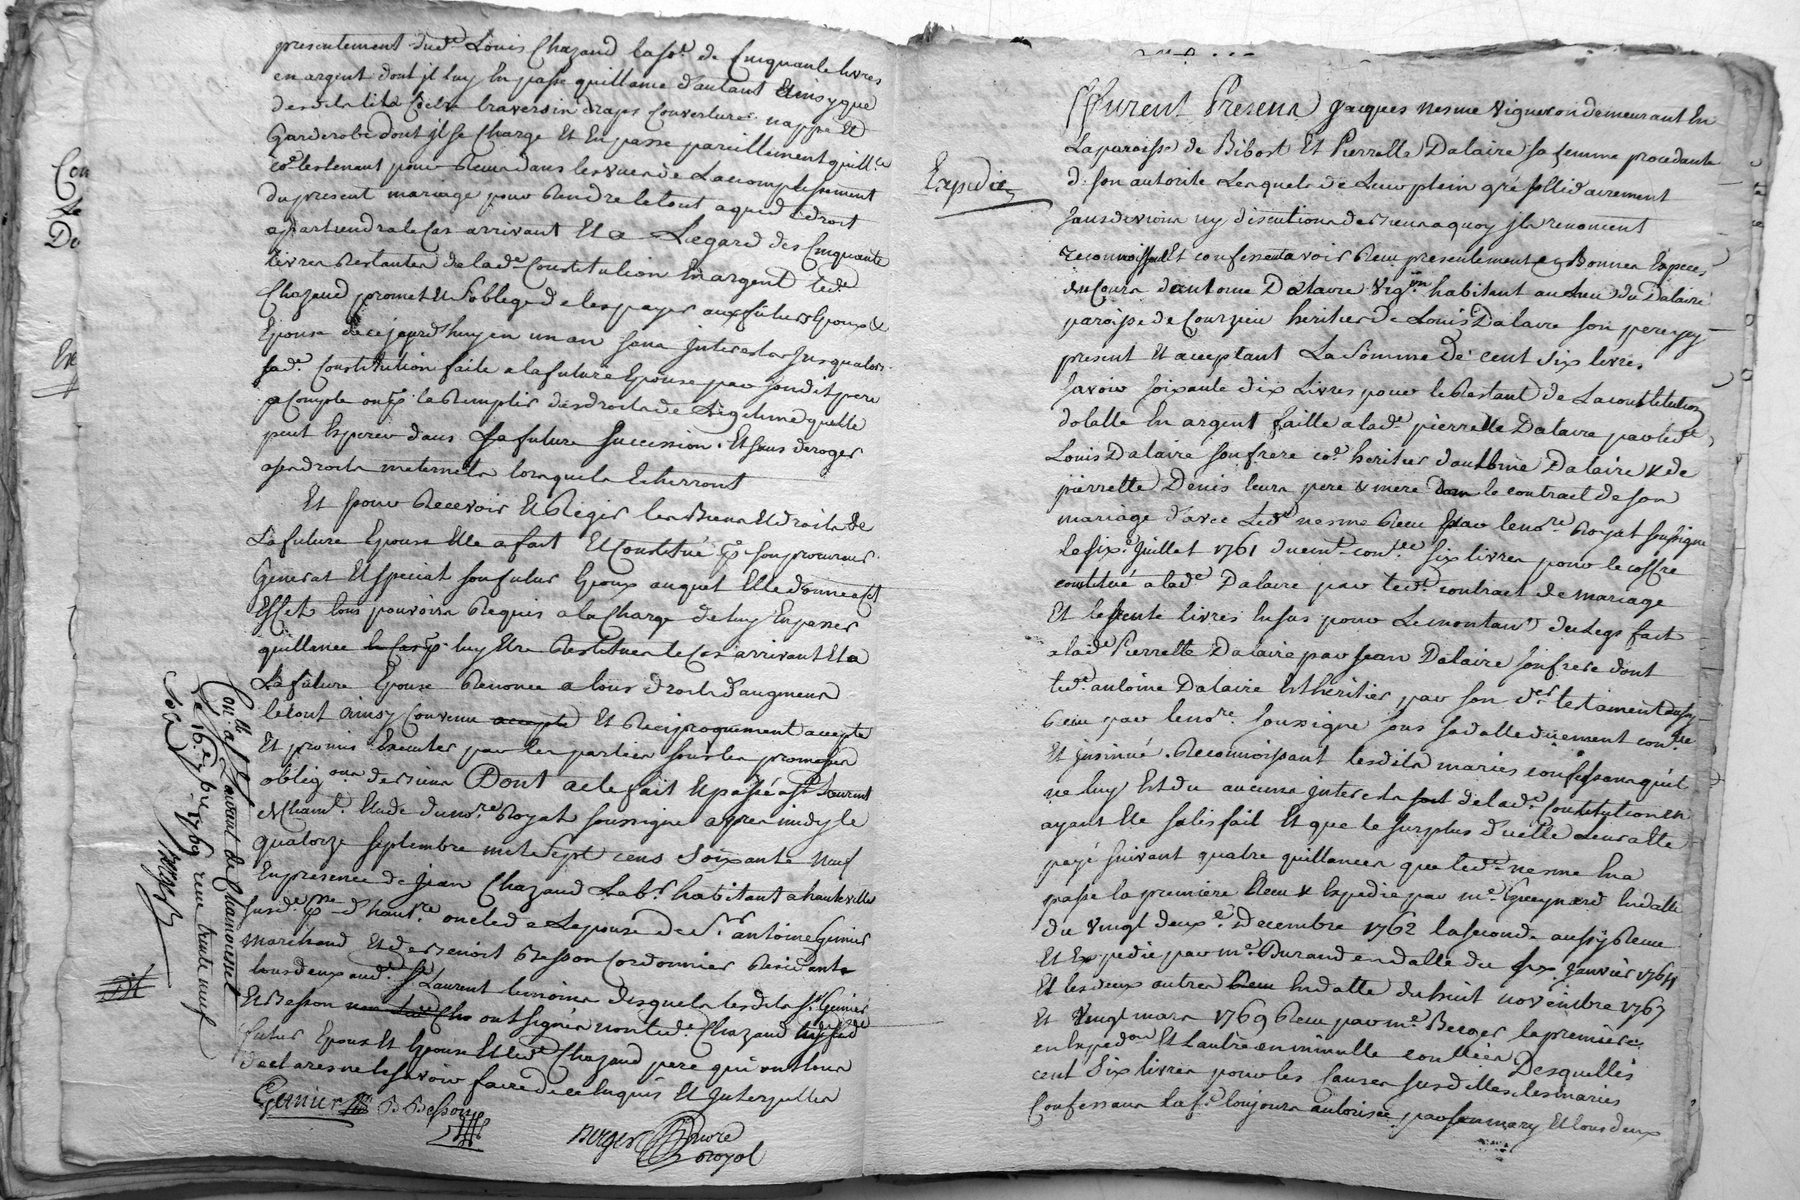 presentement dud.e Louis Chazaud la so.e de Cinquante livres
en argent dont jl luy en passe quittance d'autant et ainsy que
desdits lits traversin draps Couverture nappe et
Garderobe dont jl se Charge et En passe pareillement quitt.ce
co.e les tenant pour Receu dans les vues de Lacomplissement
du present mariage pour Rendre le tout a qui de droit
apartiendra le Cas arrivant Et a Legard des Cinquante
livres Restantes de lad.e Constitution En argent led.e
Chazaud promet et soblege de les payer aux futurs Epoux &
Epouse de cejourdhuy en un an sans jnterests jusqualors
lad.e Constitution faite a la future Epouse par sondit pere
a Compte ou p.r la Remplir des droits de Legitime quelle
peut Esperer dans sa future succession. Et sans deroger
a ses droits maternels lorsquils Echerront
Et pour Recevoir et Regir les Biens et droits de
La future Epouse Elle a fait Et Constitué p.r son procureur
General Et special son futur Epoux auquel Elle donne a cet
Effet tous pouvoirs Requis a la Charge de luy En passer
quittance luy Etre Restituer le Cas arrivant Et a
La future Epouse Renonce a tous droits d'augment
le tout ainsy Convenu accepté Et Reciproquement accepte
Et promis Executer par les parties sous les promesses
oblig.ons de Biens Dont acte fait Et passé a St Laurent
de Cham.t Etude du no.re Royal soussigne apres midy le
quatorze septembre mil sept cens soixante neuf
En presence de Jean Chazaud Lab.r habitant a hauteville
susd.e oncle de Lepouse de S.r antoine Genier
marchand Et de Benoit Besson Cordonnier Residants
tous deux aud.e St Laurent temoins desquels lesdits S.r Genier
Et Besson ont signés non led.e Chazaud
futur Epoux Et Epouse Et led.e Chazaud pere qui ont tous
declares ne le savoir faire de ce Enquis Et Interpellés
Genier B Besson
Berger
Royol
Con.llé a St Laurant de Chamousset
le 16.e 7bre 1769 reçu trente neuf
sols
Berger
Expedie
Furent Presens Jacques nesme vigneron demeurant En
La paroisse de Bibost Et Pierrette Dalaire sa femme procedante
de son autorite Lesquels de Leur plein gré sollidairement
sans division ny discution de Biens a quoy jls renoncent
reconnoissent Et confessent avoir Receu presentement en Bonnes Especes
du Cours d'antoine Dalaire Vig.ron habitant au Lieu du Dalaire
paroisse de Courzieu heritier de Louis Dalaire son pere jcy
present Et acceptant La Somme de cent six livres
savoir soixante dix Livres pour le Restant de La constitution
dotalle En argent faitte a lad.e pierrette Dalaire par led.e
Louis Dalaire son frere co.e heritier d'antoine Dalaire & de
pierrette Denis leurs pere & mere dans le contract de son
mariage d'avec led.e nesme Receu par le no.re Royal soussigne
le six.e Juillet 1761 duem.t con.llé six livres pour le coffre
constitué a lad.e Dalaire par led.e contract de mariage
Et les trente livres En sus pour Le montant du Legs fait
a lad.e Pierrette Dalaire par Jean Dalaire son frere dont
led.e antoine Dalaire Est héritier par son d.er testament aussy
Receu par le no.re soussigne sous sa datte duement con.llé
Et jnsinué. Reconnoissant lesdits mariés confessans qu'il
ne luy Est du aucuns jnterets de lad.e constitution en
ayant Ete satisfait Et que le surplus d'icelle leur a Ete
payé suivant quatre quittances que led.e nesme En a
passe la premiere Receu & Expedie par m.e Gueynard En datte
du vingt deux.e Decembre 1762 la seconde aussy Receu
Et Expedié par m.e Durand en datte du six janvier 1764
Et les deux autres En datte du huit novembre 1767
Et vingt mars 1769 Receu par m.e Berger la premiere
en Exped.on Et Lautre en minutte contrées Desquelles
cent Six livres pour les Causes susdittes, les mariés
Confessans La f.e toujours autorisée par son mary Et tous deux